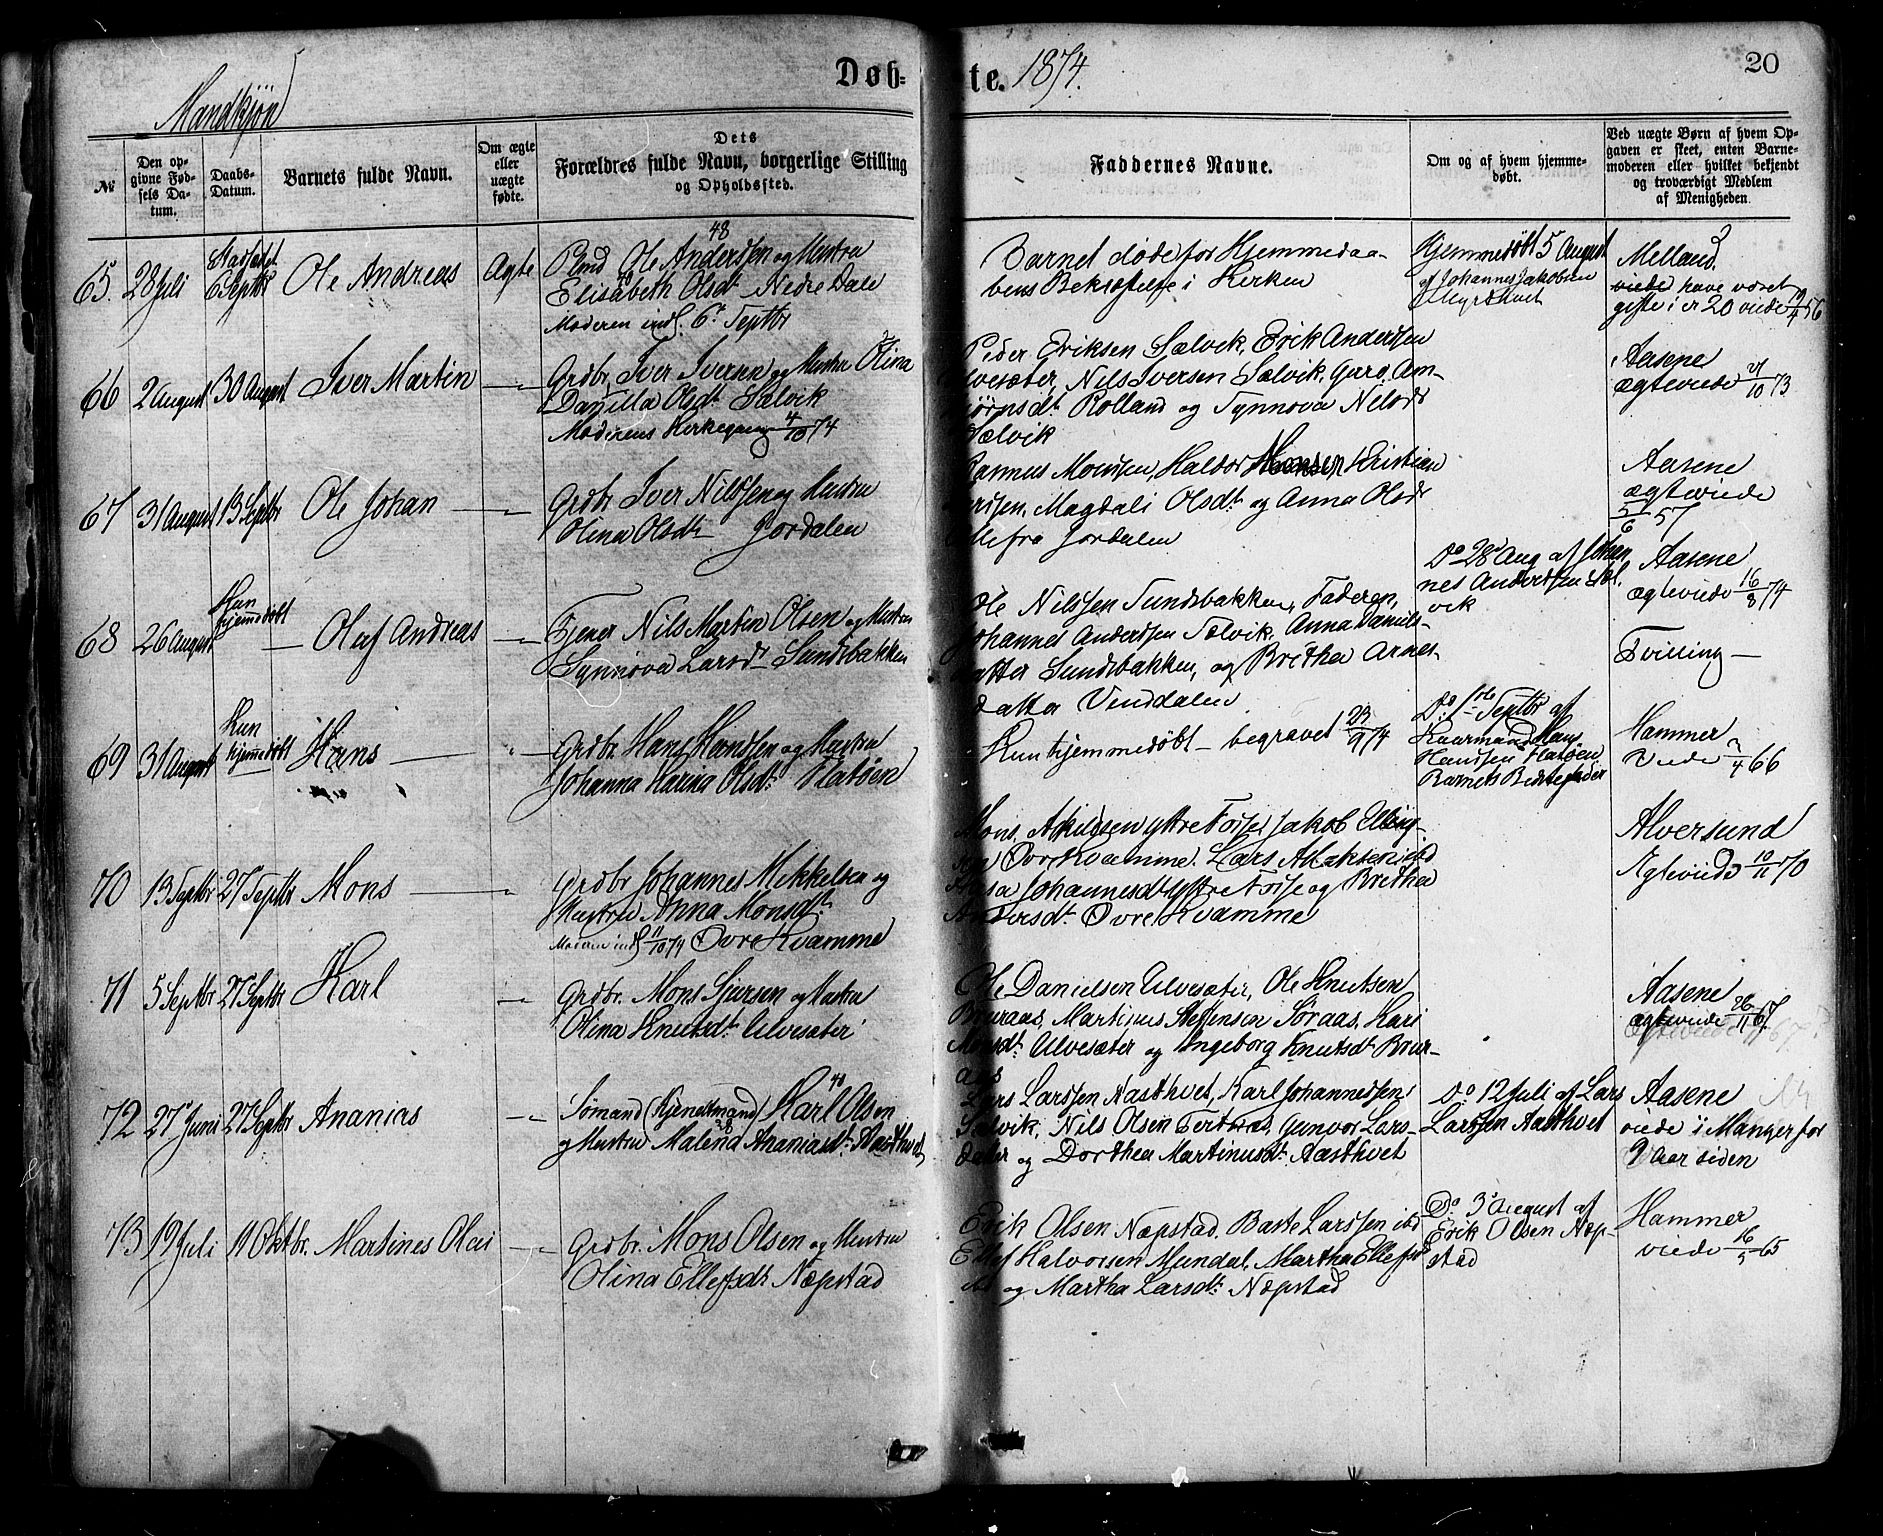 Døb-
te. 1874.
20
Mandkjøn
№
Den op-
givne Fød-
sels Da-
tum.
Daabs-
Datum.
Barnets fulde Navn.
Om ægte
eller
uægte
fødte.
Dets
Forældres fulde Navn, borgerlige Stilling
og Opholdssted.
Faddernes Navne.
Om og af hvem hjemme-
døbt.
Ved uægte Børn af hvem Op-
gaven er skeet, enten Barne-
moderen eller hvilket bekjendt
og troværdigt Medlem
af Menigheden.
65. 28 Juli
6 Septbr
Ole Andreas
Ægte
48
Ole Anderssen og Hustru
Elisabeth Olsdt. Nedre Dale
Moderen indl. 6 Septbr
Barnet døde før Hjemmedaa-
bens Bekræftelse i Kirken
Hjemmedøbt 5 August
af Johannes Jakobsen
Myrthvet
Melland
viede have været
gifte i 20 viede 19/4 56
66 2 August 30 August Iver Martin
Grdbr. Iver Iversen og Hustru Olina
Danilla Olsdt. Sælvik
Moderens Kirkegang 4/10 74
Peder Eriksen Sælvik, Erik Anderssen
Ulvesæter, Nils Iversen Sælvik, Guro Am-
bjørnsdt. Rolland og Synnøva Nilsdt
Sælvik
Aasene
ægteviede 21/10 73
67 31 August 13 Septbr Ole Johan
Grdbr Iver Nilssen og Hustru
Olina Olsdt. Jordalen
Rasmus Monssen, Haldor Monsen, Kristian
Magdali Olsdt. og Anna Olsdt
Alle fra Jordalen
Aasene
ægteviede
5/6 57
68 26 August
Kun
hjemmedøbt
Olaf Andreas
Tjener Nils Martin Olsen og Hustru
Synnøva Larsdt. Sundsbakken
Ole Nilssen Sundsbakken, Faderen,
Johannes Anderssen Sælvik, Anna Daniels-
datter Sundsbakken, og Brithe Arnes-
datter Venddalen
Do 28 Aug af Johan-
nes Anderssen Sæl-
vik
Aasene
ægteviede 16/8 74
Tvilling
69 31 August
Kun
hjemmedøbt
Hans
Grdbr. Hans Hanssen og Hustru
Johanna Hanna Olsdt. Flatøen
Kun hjemmedøbt – begravet 23/9 74
Do 1ste Septbr af
Kaarmand Hans
Hanssen Flatøen
Barnets Bedstefader
Hammer
Viede 2/4 66
70 13 Septbr 27 Septbr Mons
Grdbr Johannes Mikkelsen og
Hustru Anna Monsdt.
Moderen indl. 11/10 74 Øvre Kvamme
Mons Askildsen yttre Fosse, Jakob Elling-
sen Øvre Kvamme, Lars
Johannesdt. Yttre Fosse og Brithe
Andersdt. Øvre Kvamme
Alversund
Ægteviede 10/11 70
71 5 Septbr 27 Septbr Karl
Grdbr. Mons Sjursen og Hustru
Olina Knutsdt. Ulvesæter
Ole Danielsen Ulvesæter, Ole Knutsen
Bruraas, Martinus Steffensen Søraas, Kari
Monsdt. Ulvesæter og Ingeborg Knutsdt. Brur-
aas
Aasene
ægteviede 26/11 67
72 27 Juni 27 Septbr Ananias
40
Sømand (Tjenestmand) Karl Olsen
38
og Hustru Malena Ananiasdt. Aasthvet
Lars Larssen Aasthvet, Karl Johannessen
Sælvik, Nils Olsen Fertnes, Gunvor Lars-
datter og Dorthea Martinusdt. Aasthvet
Do 12 Juli af Lars
Larssen Aasthvet
Aasene
viede i Manger for
9 Aar siden
73 19 Juli 11 Oktbr. Martines Olai
Grdbr. Mons Olsen og Hustru
Olina Ellefsdt. Næpstad
Erik Olsen Næpstad, Baste Larssen ibd
Ellef Halvorsen Mundal, Martha Ellefsdt
ibd og Martha Larsdt. Næpstad
Do 3 August af
Erik Olsen Næp-
stad
Hammer
viede 16/5 65